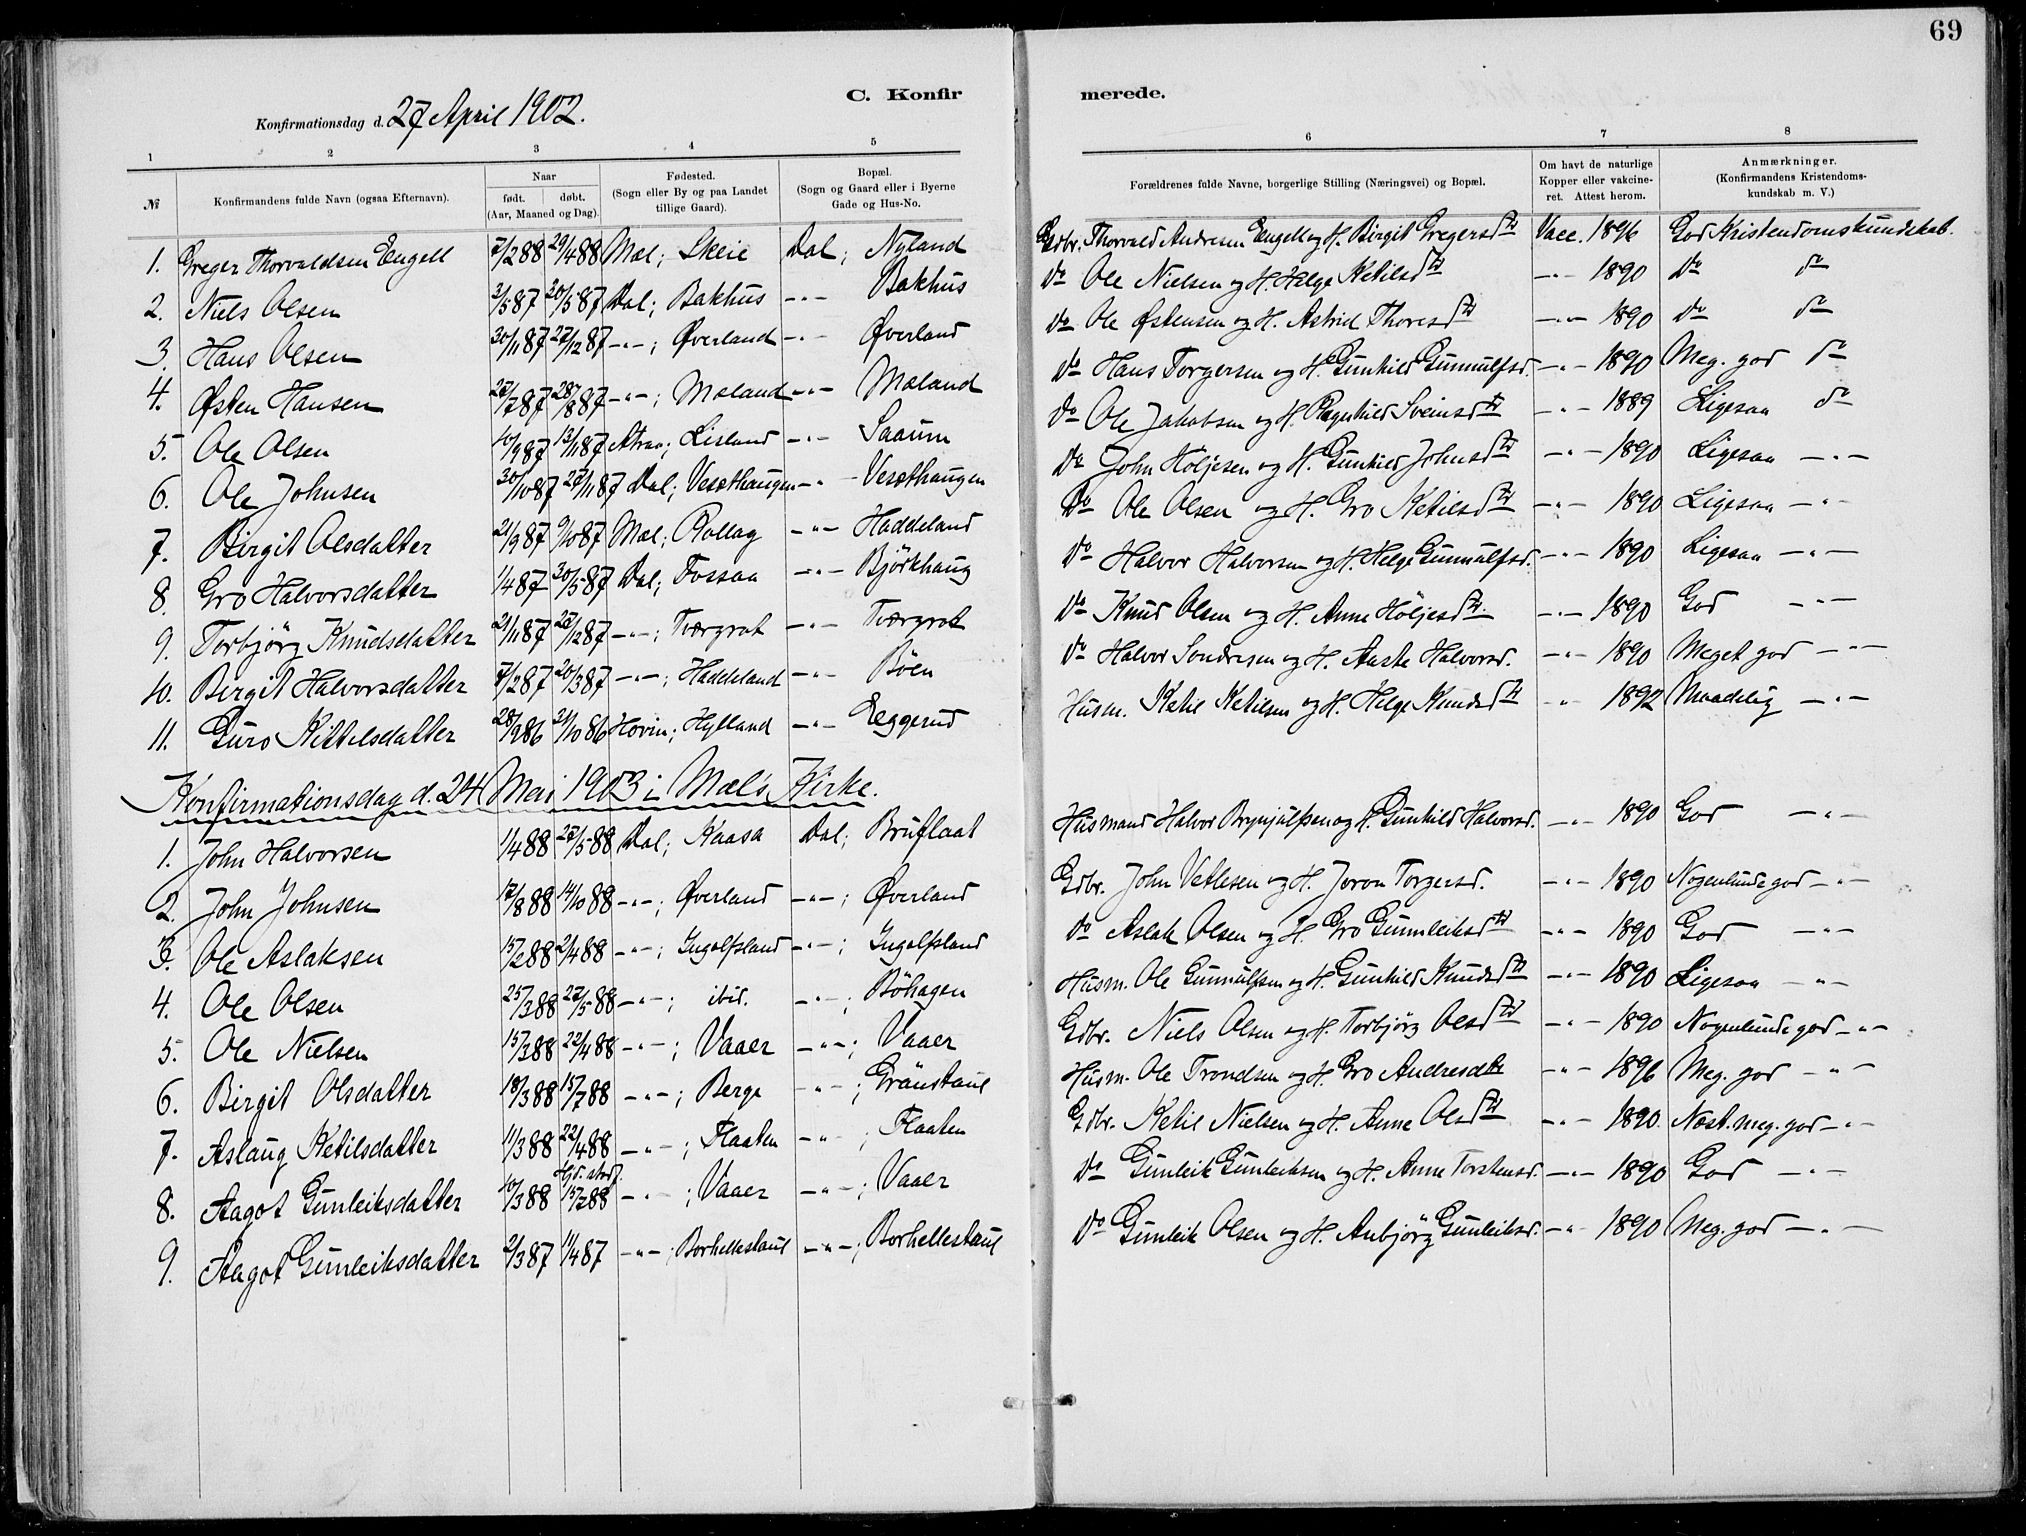 69
C. Konfir merede.
Konfirmationsdag d. 27 April 1902.
1 2 3 4 5 6 7 8
№ Konfirmandens fulde Navn (ogsaa Efternavn). Naar født. døbt. (Aar, Maaned og Dag). Fødested. (Sogn eller By og paa Landet tillige Gaard). Bopæl. (Sogn og Gaard eller i Byerne Gade og Hus-No. Forældrenes fulde Navne, borgerlige Stilling (Næringsvei) og Bopæl. Om havt de naturlige Kopper eller vakcineret. Attest herom. Anmærkninger. (Konfirmandens Kristendomskundskab m. V.)
1. Greger Thorvaldsen Engell 7/2 88 29/4 88 Mæl; Skeie Dal; Nyland Gdbr. Thorvald Andresen Engell og H. Birgit Gregersdtr Vacc. 1896 God Kristendomskundskab.
2. Niels Olsen 3/5 87 30/5 87 Dal; Bakhus -"- Bakhus do Ole Nielsen og H. Helge Ketilsdtr -"- 1890 do do
3. Hans Olsen 30/11 87 27/12 87 -"-; Øverland -"- Øverland do Ole Østensen og H. Astrid Thoresdtr -"- 1890 do do
4. Østen Hansen 27/7 87 28/8 87 -"-; Mæland -"- Mæland do Hans Torgersen og H. Gunhild Gunnulfsd. -"- 1890 Meg. god do
5. Ole Olsen 10/9 87 13/11 87 Atraa; Lisland -"- Saaum do Ole Jakobsen og H. Ragnhild Sveinsdtr -"- 1889 Ligesaa do
6. Ole Johnsen 30/10 87 27/11 87 Dal; Vesæthaugen -"- Vesæthaugen do John Höljesen og H. Gunhild Johnsdtr -"- 1890 Ligesaa -"-
7. Birgit Olsdatter 21/9 87 9/10 87 Mæl; Rollag -"- Haddeland do Ole Olsen og H. Gro Ketilsdtr -"- 1890 Ligesaa -"-
8. Gro Halvorsdatter 1/4 87 30/5 87 Dal; Fossaa -"- Björkhaug do Halvor Halvorsen og H. Helge Gunnulfsd. -"- 1890 Ligesaa -"-
9. Torbjörg Knudsdatter 21/11 87 /12 87 -"-; Tværgrot -"- Tværgrot do Knud Olsen og H. Anne Höljesdtr. -"- 1890 God -"-
10. Birgit Halvorsdatter 7/2 87 20/3 87 -"-; Haddeland -"- Böen do Halvor Sondresen og H. Aaste Halvorsd. -"- 1890 Meget god -"-
11. Guro Kittelsdatter 28/9 86 31/10 86 Hovin; Hylland -"- Eggerud Husm. Ketil Ketilsen og H. Helge Knudsdtr -"- 1892 Maadelig -"-
Konfirmationsdag d. 24 Mai 1903 i Mæls Kirke.
1. John Halvorsen 1/4 88 27/5 88 Dal; Kaasa Dal; Bruflaat Husmand Halvor Brynjulfsen og H. Gunhild Halvorsd. -"- 1890 God -"-
2. John Johnsen 17/8 88 14/10 88 -"-; Øverland -"-; Øverland Gdbr. John Vetlesen og H. Joron Torgersd. -"- 1890 Nogenlunde god -"-
3. Ole Aslaksen 15/2 88 2/4 88 -"-; Ingolfsland -"-; Ingolfsland do Aslak Olsen og H. Gro Gunnleiksdtr -"- 1890 God -"-
4. Ole Olsen 25/3 88 27/5 88 -"-; ibid. -"-; Böhagen Husm. Ole Gunnulfsen og H. Gunhild Knudsdtr -"- 1890 Ligesaa -"-
5. Ole Nielsen 15/3 88 22/4 88 -"-; Vaaer -"-; Vaaer Gdbr. Niels Olsen og H. Torbjörg Olsdtr -"- 1890 Nogenlunde god -"-
6. Birgit Olsdatter 18/3 88 15/7 88 -"-; Berge -"-; Gränstaul Husm. Ole Trondsen og H. Gro Andresdtr -"- 1896 Meg. god -"-
7. Aslaug Ketilsdatter 11/3 88 22/4 88 -"-; Flaaten -"-; Flaaten Gdbr. Ketil Nielsen og H. Anne Olsdtr -"- 1890. Næst. meg. god -"-
8. Aagot Gunleiksdatter 10/3 88 Hjd. stadf. 15/7 88 -"-; Vaaer -"-; Vaaer do Gunleik Gunleiksen og H. Anne Torstensd. -"- 1890 God -"-
9. Aagot Gunleiksdatter 2/3 87 11/4 87 -"-; Borhellestaul -"-; Borhellestaul do Gunleik Olsen og H. Anbjörg Gunleiksd. -"- 1890 Meg. god -"-